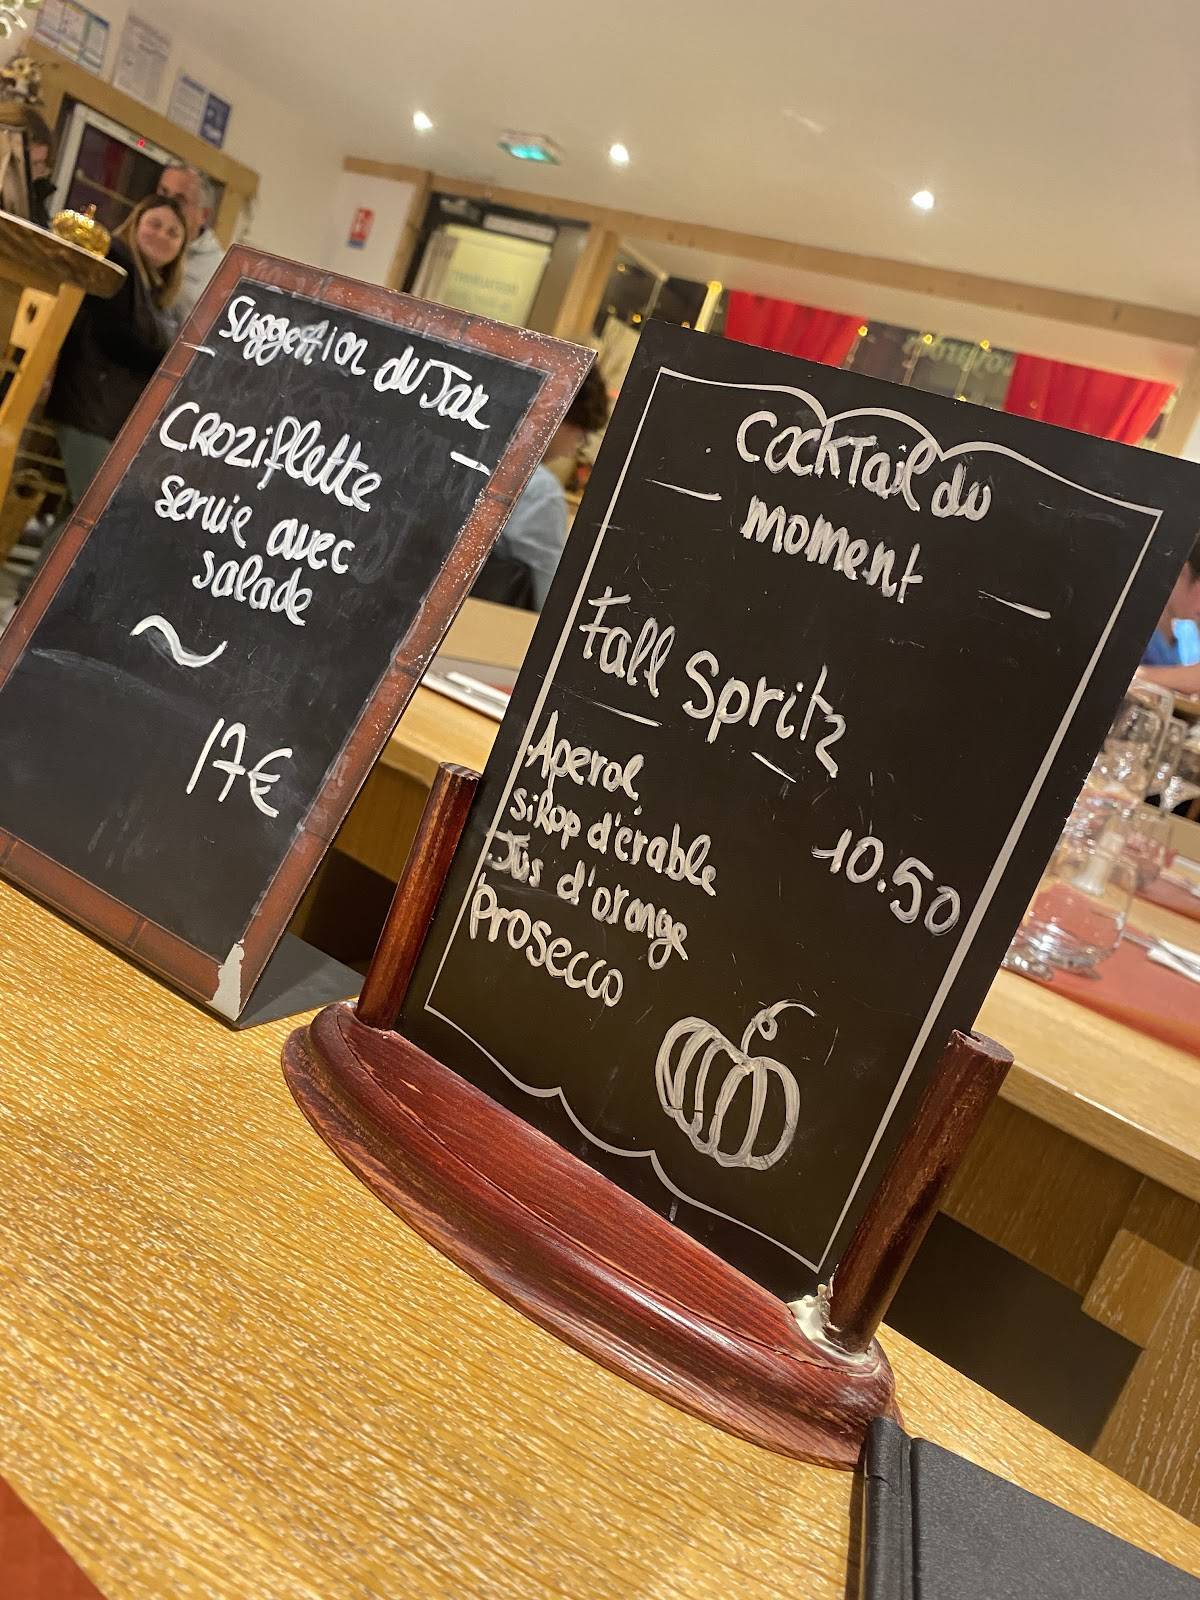 Suggestion du Jar
Croziflette
servie avec
salade
17€
Cocktail du
moment
Fall Spritz
Aperol,
sirop d'érable
Jus d'orange
10.50
Prosecco